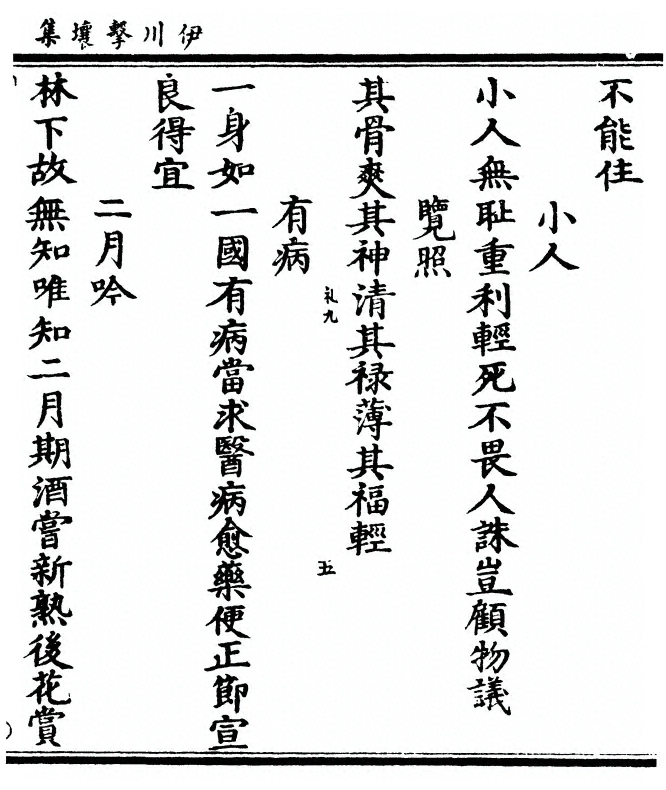 伊川擊壤集
不能住
小人
小人無耻重利輕死不畏人誅豈顧物議
覽照
其骨爽其神清其禄薄其福輕
礼九
五
有病
一身如一國有病當求醫病愈藥便正節宣
良得宜
二月吟
林下故無知唯知二月期酒嘗新熟後花賞